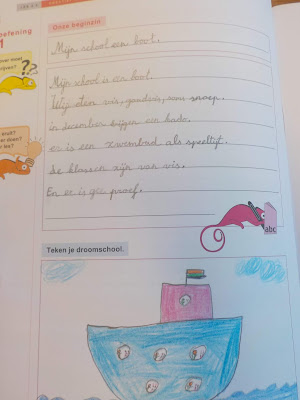 LES 3-4
oefening
1
Onze beginzin
Mijn school een boot.
Mijn school is een boot.
Wij eten vis, goudvis, soms snoep.
in december krijgen een kado.
er is een zwembad als speeltijt.
de klassen zijn van vis.
En er is gee proef.
abc
Teken je droomschool.